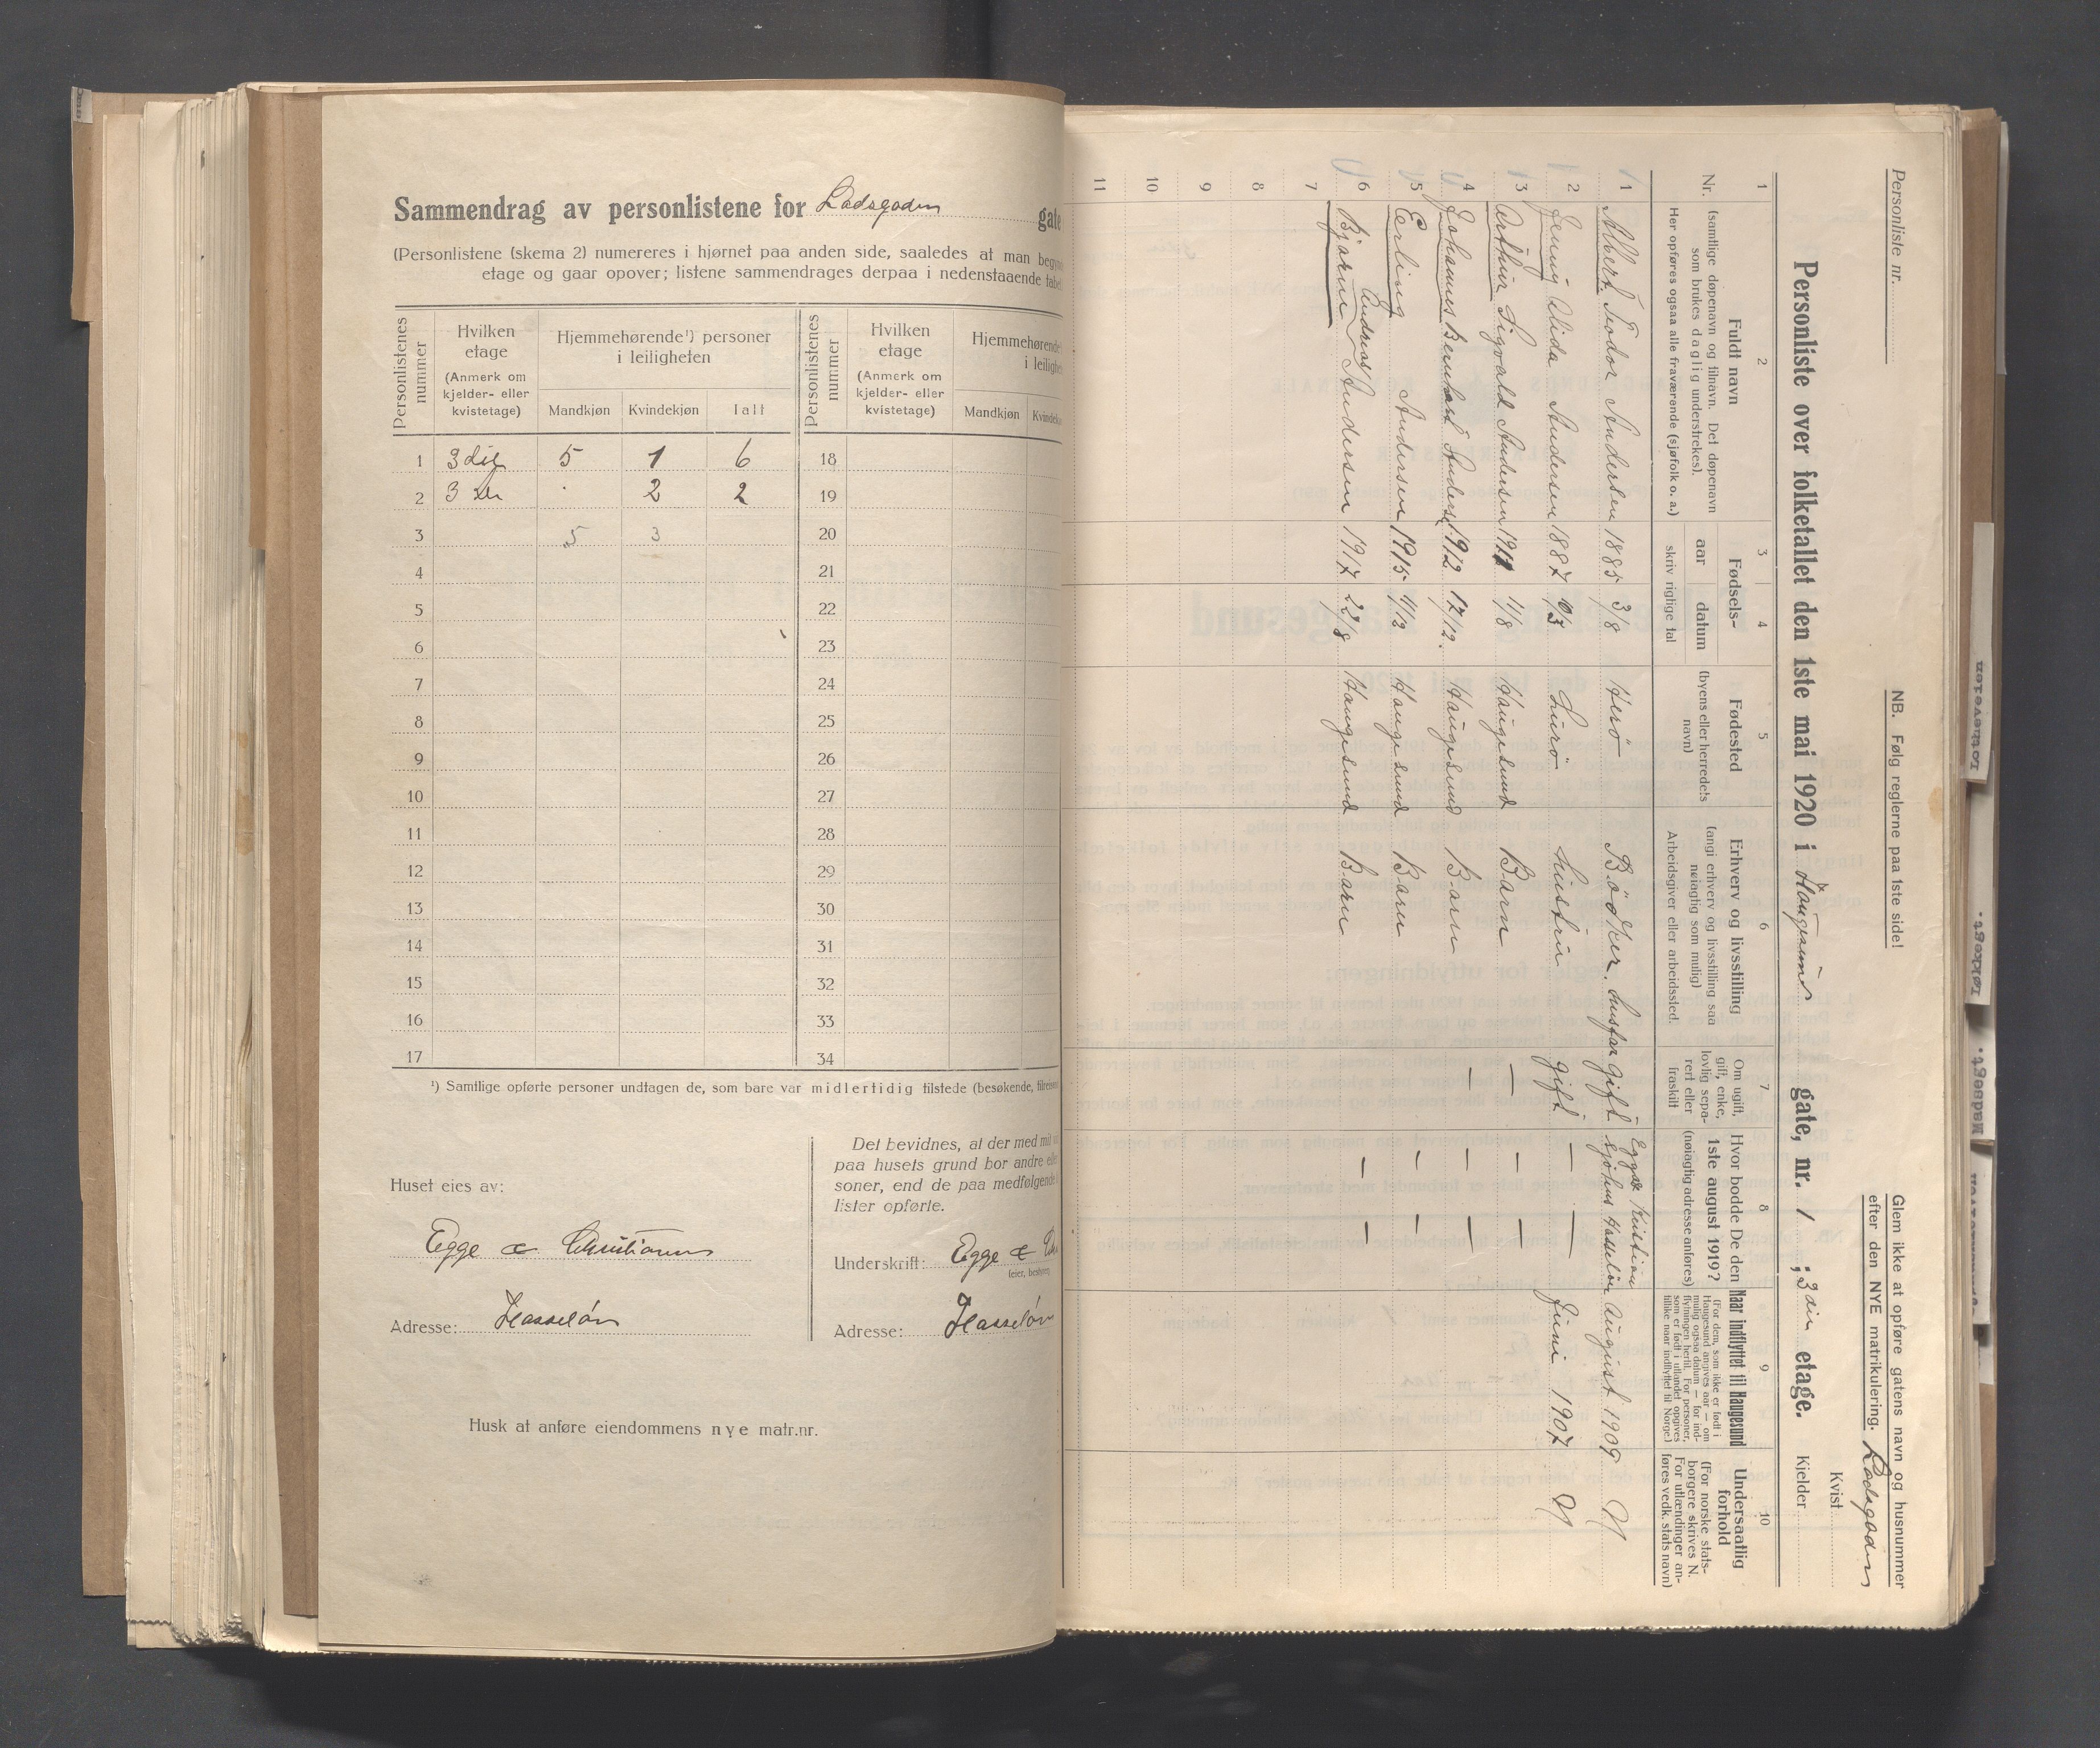 Sammendrag av personlistene for Lodsgaden gate
(Personlistene (skema 2) numereres i hjørnet paa anden side, saaledes at man
etage og gaar opover; listene sammendrages derpaa i nedenstaaende
Personlistenes nummer
Hvilken etage
(Anmerk om kjelder- eller kvistetage)
Hjemmehørende¹) personer i leiligheten
Mandkjøn Kvindekjøn Ialt
Personlistenes nummer
Hvilken etage
(Anmerk om kjelder- eller kvistetage)
Mandkjøn
1 3die 5 1 6 18
2 3 2 2 19
3 5 3 20
4 21
5 22
6 23
7 24
8 25
9 26
10 27
11 28
12 29
13 30
14 31
15 32
16 33
17 34
¹) Samtlige opførte personer undtagen de, som bare var midlertidig tilstede (besøkende,
Huset eies av:
Egge & Christiansen
Adresse: Hasseløen
Det bevidnes, at der med
paa husets grund bor andre
soner, end de paa medfølgende
lister opførte.
Underskrift: Egge &
Adresse: Hasseløen
Husk at anføre eiendommens nye matr.nr.
Personliste nr.
NB. Følg reglerne paa 1ste side!
Glem ikke at opføre gatens navn og husnummer
efter den NYE matrikulering. Lodsgaden
Kvist
Personliste over folketallet den 1ste mai 1920 i Haugesund gate, nr. 1 ; 3die etage.
Kjelder
1 2 3 4 5 6 7 8 9 10
Nr.
Fuldt navn
(samtlige døpenavn og tilnavn. Det døpenavn som brukes daglig understrekes).
Her opføres ogsaa alle fraværende (sjøfolk o. a.)
Fødsels-
aar datum
skriv rigtige tal
Fødested
(byens eller herredets navn)
Erhverv og livsstilling
(angi erhverv og livsstilling saa nøiagtig som mulig)
Arbeidsgiver eller arbeidssted.
Om ugift, gift, enke, lovlig separert eller fraskilt
Hvor bodde De den 1ste august 1919?
(nøiagtig adresse anføres)
Naar indflyttet til Haugesund
(For dem, som ikke er født i Haugesund angives aar — om mulig ogsaa datum — for indflytningen hertil. For personer, som er født i utlandet opgives tillike naar indflyttet til Norge.)
Undersaatlig forhold
(For norske statsborgere skrives N. For utlændinger anføres vedk. stats navn)
1 Albert Todor Andersen 1885 3/8 Herö Bödker. Husfar gift Egge & Kristian sjøhus Hasseløen August 1909 N
2 Jenny Alida Andersen 1887 10/3 Lurö Hustru gift — — Juni 1907 N
3 Arthur Sigvald Andersen 1911 1/8 Haugesund Barn — — —
4 Johannes Bernhard Anders. 1912 17/12. Haugesund Barn — — —
5 Erling Andersen 1915 4/12 Haugesund Barn — —
6 Bjarne Andreas Andersen 1917 22/8 Haugesund Barn — —
7
8
9
10
11